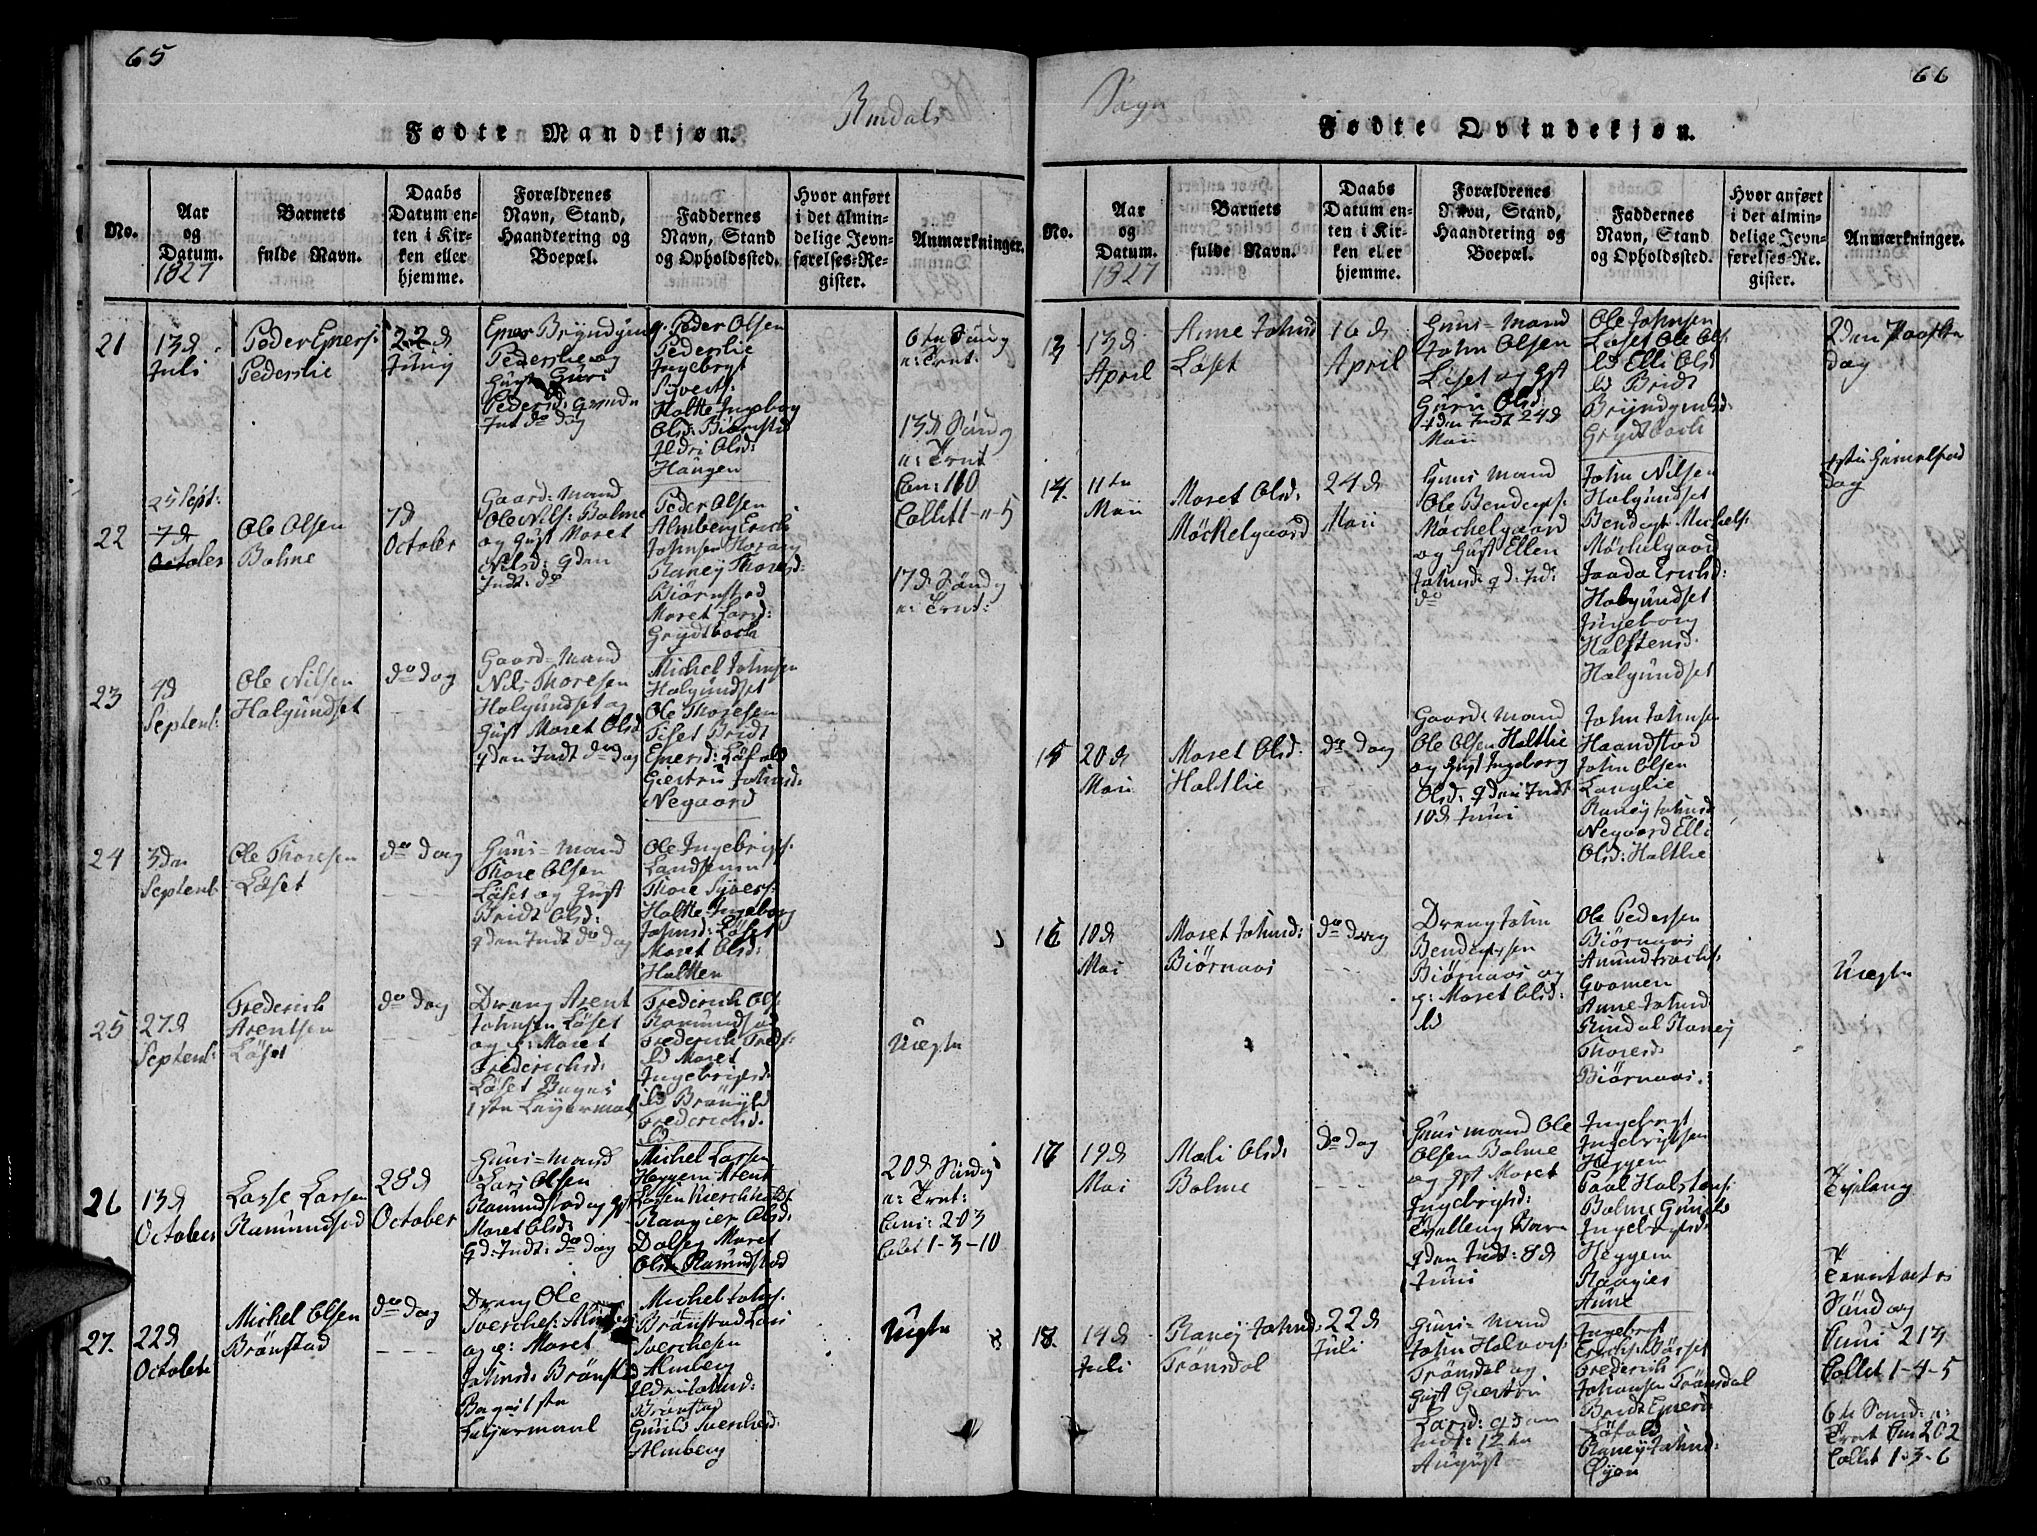 65
Rindals
Fødte Mandkjøn.
No.
Aar og Datum.
1827
Barnets fulde Navn.
Daabs Datum enten i Kirken eller hjemme.
Forældrenes Navn, Stand, Haandtering og Boepæl.
Faddernes Navn, Stand og Opholdssted.
Hvor anført i det almindelige Jevnførelses-Register.
Anmærkninger.
21
13d
Juli
Peder Eners:
Pederslie
22d
Ener Bryndgen
Pederslie og
Hust Guri
Pedersd:
Int do dag
Peder Olsen
Pederslie
Ingebrygt
Sivert:
Holtte Ingeborg
Olsd: Biørnstad
Ildri Olsd:
Haugen
6te Søndg
e: Trnt:
13d Søndg
e: Trnt
Com: 160
Collet 1-"-5
22
25 Sept:
7d
October
Ole Olsen
Bolme
7d
October
Gaard: Mand
Ole Nils: Bolme
og Hust Moret
Nilsd: q den
Indt: do
Peder Olsen
Almberg Erich
Johnsen
Raney Thoresd:
Biørnstad
Moret Larsd:
Grydtbach
17d Søndg
e: Trnt:
23
4d
Septemb:
Ole Nilsen
Halgundset
do dag
Gaard=Mand
Nils Thoresen
Halgundset og
Hust Moret Olsd
q den Indt do dag
Michel Johnsen
Halgundset
Ole Thoresen
Tiset Bridt
Enersd: Løfald
Giertru Johnsd:
Negaard
24
3die
Septemb
Ole Thoresen
Løset
do dag
Huus=Mand
Thore Olsen
Løset og Hust
Bridt Olsd:
q den Indt do dag
Ole Ingebrigs:
Landsem
Thore Syvers:
Holtte Ingeborg
Johnsd: Løset
Moret Olsd:
Holtten
25
27d
Septemb:
Frederich
Arentsen
Løset
do dag
Dreng Arent
Johnsen Løset
og p: Moret
Frederichsd:
Løset Beges
1ste Leyermaal
Frederich Ols:
Romundstad
Frederich Freds:
ibd Moret
Ingebrigtsd:
ibd Brønyld
Frederichsd.
ibd
Uægte
26
13d
October
Lasse Larsen
Romundstad
28d
October
Huus=Mand
Lars Olsen
Romundstad og Hst
Moret Olsd:
q d: Indt: do dag
Michel Larsen
Heggem Arent
Olsd:
Dalseg Moret
Olsd: Romundstad
20d Søndg
e: Trnt:
Com: 203
Collet 1-3-10
27.
22d
October
Michel Olsen
Brønstad
do dag
Dreng Ole
Sverches: Almberg
og p: Moret
Johnsd: Brønstad
Begs 1ste
Leijermaal
Michel Johns:
Brønstad Lars
Sverchesen
Almberg
Ildri Johnsd:
Brønstad
Gunild Sverchesd:
Almberg
Uægte
66
Sogn
Fødte Qvindekjøn.
No.
Aar og Datum.
1827
Barnets fulde Navn.
Daabs Datum enten i Kirken eller hjemme.
Forældrenes Navn, Stand, Haandtering og Boepæl.
Faddernes Navn, Stand og Opholdssted.
Hvor anført i det almindelige Jevnførelses-Register.
Anmærkninger.
13
13d
April
Anne Johnsd
Løset
16d
April
Huus=Mand
John Olsen
Løset og Hst
Guru Olsd:
q den Indt 24d
Maii
Ole Johnsen
Løset Ole Ols:
ibd Elli Olsd
ibd Bridt
Bryndgensd:
Grydtbach
2den Paaske
dag
14.
11te
Maii
Moret Olsd:
Møchelgaard
24d
Maii
Huus Mand
Ole Bendigs:
Møchelgaard
og Hust Ellen
Johnsd: q d: Ind:
do
John Nilsen
Halgundset
Bendigt Michels:
Møchelgaard
Erichsd:
Halgundset
Ingeborg
Halstensd.
Halgundset
Christi Himelfard
dag
15
20d
Maii
Moret Olsd:
Holtlie
do dag
Gaard: Mand
Ole Olsen Holtlie
og Hust Ingeborg
Olsd: q den Indt
10d Juni
John Johnsen
Haandstad
John Olsen
Langlie
Raney Johnsd
Negaard Elli
Olsd: Holtlie
16
10d
Mai
Moret Johnsd:
Biørnaas
do dag
Dreng John
Bendigtsen
Biørnaas og
p: Moret Olsd:
ibd
Ole Pedersen
Biørnaas
Amund
Gvamen
Anne Johnsd
Rindal Raney
Thoresd:
Biørnaas.
Uægte
17
19d
Mai
Mali Olsd:
Bolme
do dag
Huus mand Ole
Olsen Bolme
og Hst Moret
Ingebrigtsd:
Tvilling Barn
q den Indt: 8d
Juni
Ingebrygt
Ingebrigtsen
Heggem
Paal Halstens:
Bolme Gunild
Ingebrigtsd:
Heggem
Raagnes
Anne
18.
14d
Juli
Raney Johnsd:
Trønsdal
22d
Juli
Huus=Mand
John Halvors:
Trønsdal og
Hust Giertru
Larsd: q den
Indt: 12te
August
Ingebrygt
Erichs: Børset
Frederich
Johansen Trønsdal
Bridt Enersd
Løfald
Raney Johnsd:
Øyen
Søndag
Com 213
Collet 1-4-5
6te Sønd: e:
Trnt Com 202
Collet 1-3-6